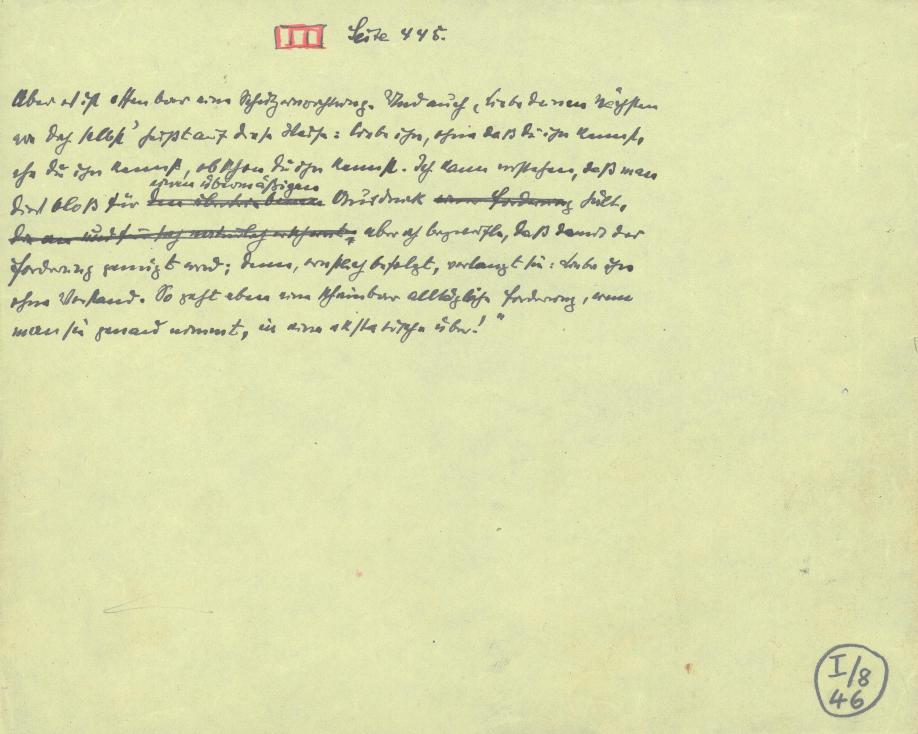 III Seite 445.
Aber es ist offenbar eine Schutzvorrichtung. Und auch „Liebe deinen Nächsten
wie dich selbst' heißt auf diese Weise: Liebe ihn, ohne daß du ihn kennst,
ehe du ihn kennst, obschon du ihn kennst. Ich kann verstehen, daß man
einen übermäßigen
dies bloß für den übertriebenen Ausdruck einer Forderung hält,
die an und für sich natürlich erscheint, aber ich bezweifle, daß damit der
Forderung genügt wird; denn, ernstlich befolgt, verlangt sie: Liebe ihn
ohne Verstand. So geht eben eine scheinbar alltägliche Forderung, wenn
man sie genau nimmt, in eine ekstatische über!"
I/8
46